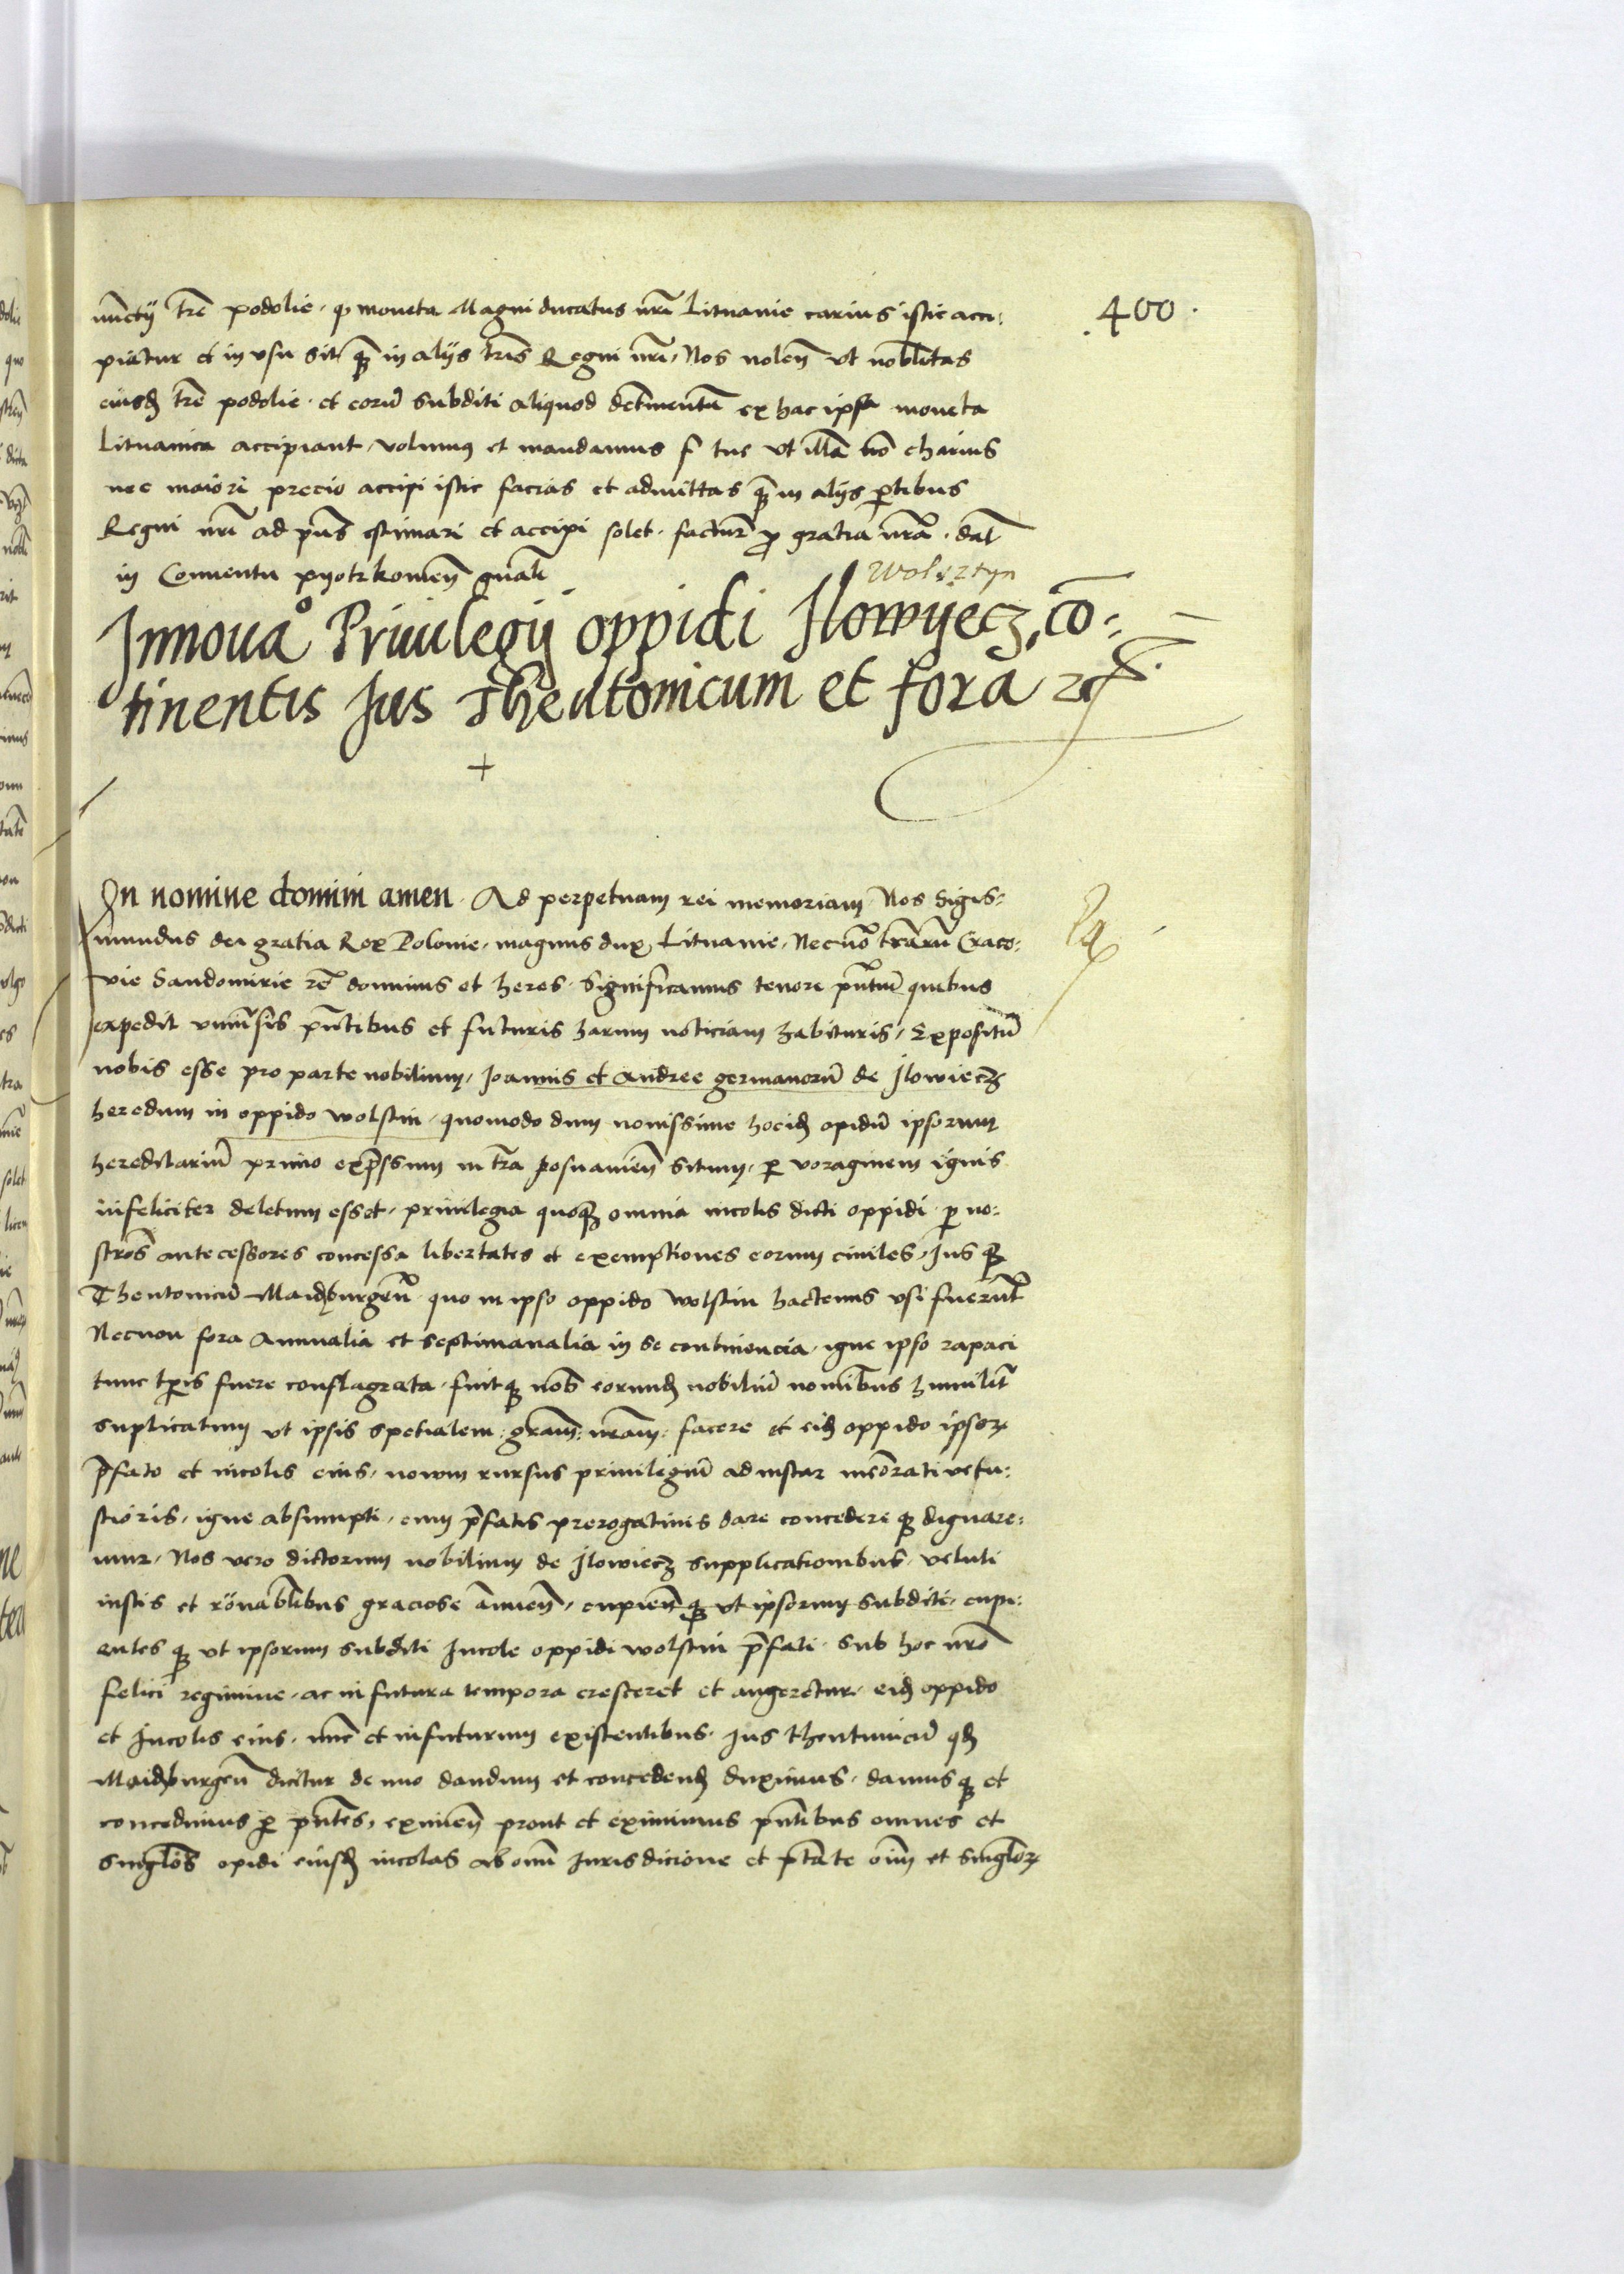 400.
nunctij tre podolie · q moneta Magni ducatus nri Lituanie carius istic acci:
piatur et in vsu sit qz in alijs tris Regni nri, Nos nolen vt nobilitas
eiusd tre podolie · et eoru subditi aliquod detrimentu ex hac ipsa moneta
Lituanica accipiant, volumus et mandamus f tue vt illa no charius
nec maiori precio accipi istic facias et admittas qz in alijs ptibus
Regni nri ad pns estimari et accipi solet · factur p gratia nra · dat
in Conuentu pyotrkowien gnali
Wolsztyn
Innoua° Priuilegij oppidi Jlowyecz, co:
tinentis Jus Theutonicum et fora
In nomine domini amen · Ad perpetuam rei memoriam Nos Sigis:
mundus dei gratia Rex Polonie, magnus dux Lituanie, Necno traru Craco:
vie Sandomirie re dominus et heres · Significamus tenore pntiu quibus
expedit vniusis pntibus et futuris harum noticiam habituris, Expositu
nobis esse pro parte nobilium, Joannis et Andree germanoru de Jlowiecz
heredum in oppido wolstin, quomodo dum nouissime hocid opidu ipsorum
hereditariu primo expssum in tra posnanien situm, p voraginem ignis
infeliciter deletum esset, priuilegia quoqz omnia incolis dicti oppidi · p no:
stros antecessores concessa libertates et exemptiones eorum ciuiles, Jus qz
Theutonicu Maidburgen quo in ipso oppido wolstin hactenus vsi fuerut
Necnon fora Annualia et septimanalia in se continencia, igne ipso rapaci
tunc tpis fuere conflagrata, fuitqz nob eorund nobiliu nominibus humilit
suplicatum vt ipsis spetialem: gram: nram: facere et eid oppido ipsor
pfato et incolis eius, nowm rursus priuilegiu ad instar meorati vetu:
stioris, igne absumpti, cum pfatis prerogatiuis dare concedere qz dignare:
mur, Nos vero dictorum nobilium de Jlowiecz supplicationibus, veluti
iustis et ronablibus graciose annuen, cupien qz vt ipsorum subditi, cupi:
entes qz vt ipsorum subditi Incole oppidi wolstin pfati · sub hoc nro
felici regimine, ac in futura tempora cresceret et augeretur, eid oppido
et Incolis eius, nunc et infuturum existentibus, Jus theutunicu qd
Maidburgen dicitur de nuo dandum et concedend duximus, damus qz et
concedimus p pntes, eximen prout et eximimus pntibus omnes et
singlos opidi eiusd incolas ab omi Jurisdicione et ptate oim et singlor